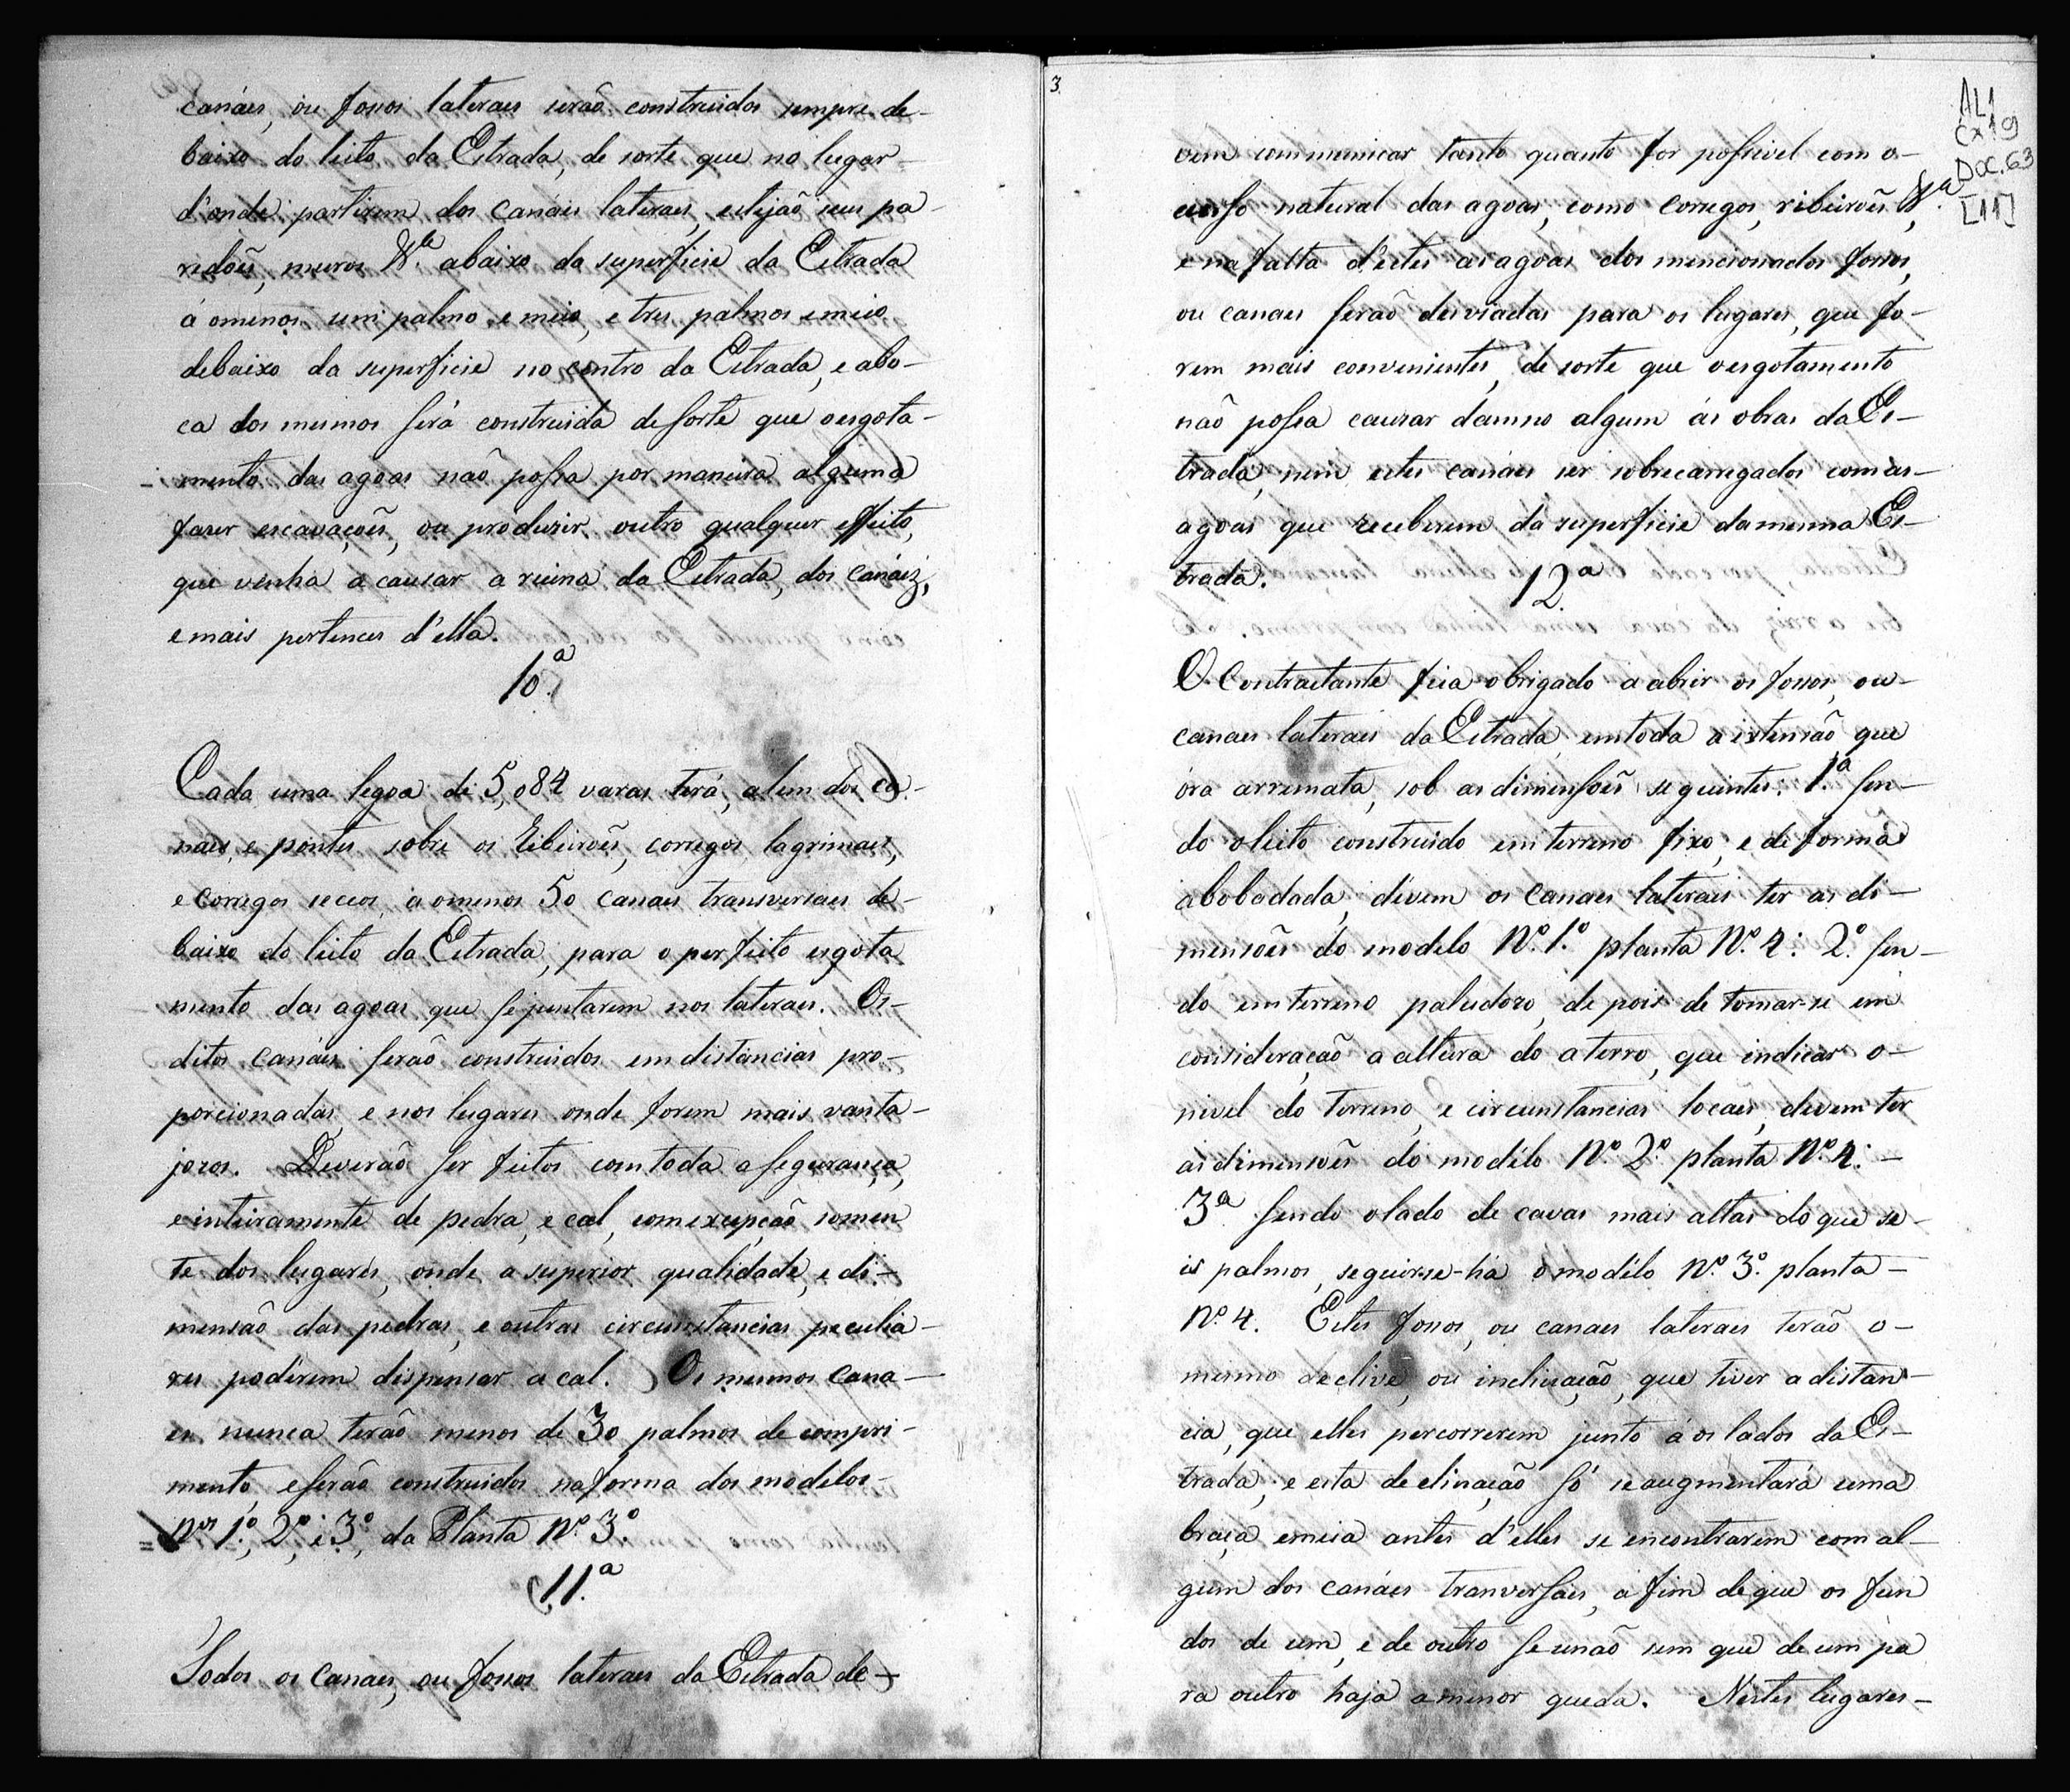 canáes, ou fossos lateraes serão construidos sempre de-
baixo do leito da Estrada, de sorte que no lugar
d'onde partirem dos Canáes lateraes, estejaõ seus pa-
redões, muros &.ª abaixo da superficie da Estrada
á omenos um palmo e meio, e tres palmos emeio
debaixo da superficie no centro da Estrada, e abo-
ca dos mesmos será construida desorte que oesgota-
mento das agoas naõ possa por maneira alguma
faser escavações, ou produzir outro qualquer effeito,
que venha a causar a ruina da Estrada, dos Canáiz,
e mais pertences d'ella.
10.ª
Cada uma legoa de 5,084 varas terá, alem dos ca-
náes, e pontes sobre os Ribeirões, corregos lagrimaes,
e Corregos seccos, á omenos 50 canaes transversaes de-
baixo do leito da Estrada, para o perfeito esgota
mento das agoas que sejuntarem nos lateraes. Os-
ditos Canáes serão construidos em distancias pro-
porcionadas, e nos lugares onde forem mais vanta-
jozos. Deverão ser feitos com toda a segurança,
e inteiramente de pedra, e cal, comexcepção somen
te dos lugares, onde a superior qualidade, e di-
mensão das pedras, e outras circunstancias peculia-
res poderem dispensar a cal. Os mesmos Cana-
es nunca terão menos de 30 palmos de compri-
mento, e serão construidos na forma dos modelos
Nos 1.º, 2.º, e 3.º, da Planta Nº 3.º
11.ª
Todos os Canaes, ou fossos lateraes da Estrada de-
3
AL1
Cx19
Doc.63
[11]
vem communicar, tanto quanto for possivel com o-
curso natural das agoas, como corregos, ribeirões &.ª,
e nafalta d'estes as agoas dos mencionados fossos,
ou canaes serão desviadas para os lugares, que fo-
rem mais convenientes, de sorte que oesgotamento
naõ possa causar damno algum ás obras da Es-
trada, nem estes canáes ser sobrecarregados com as-
agoas que receberem da superficie damesma Es-
trada.
12.ª
O Contractante fica obrigado a abrir os fossos, ou-
canaes lateraes da Estrada, emtoda a extensão, que
óra arremata, sob as dimensões seguintes: 1.ª sen-
do oleito construido em terreno fixo, e de forma
abobadada, devem os Canaes lateraes ter as di-
mensões do modelo Nº 1.º planta Nº 4: 2.º sen-
do em terreno paludozo, de pois de tomar-se em
consideração a altura do aterro, que indicar o-
nivel do terreno, e circunstancias locaes, devem ter
as dimensões do modélo Nº 2.º planta Nº 4: -
3ª sendo o lado de cavas mais altas do que se-
is palmos, seguir-se-ha o modélo Nº 3.º planta -
Nº 4. Estes fossos, ou canaes lateraes terão o-
mesmo declive, ou inclinação, que tiver a distan-
cia, que elles percorrerem junto á os lados da Es-
trada, e esta declinação só se augmentará uma
braça emeia antes d'elles se encontrarem com al-
gum dos canáes tranversaes, á fim deque os fun
dos de um, e de outro se unaõ sem que de um pa
ra outro haja a menor queda. Nestes lugares-